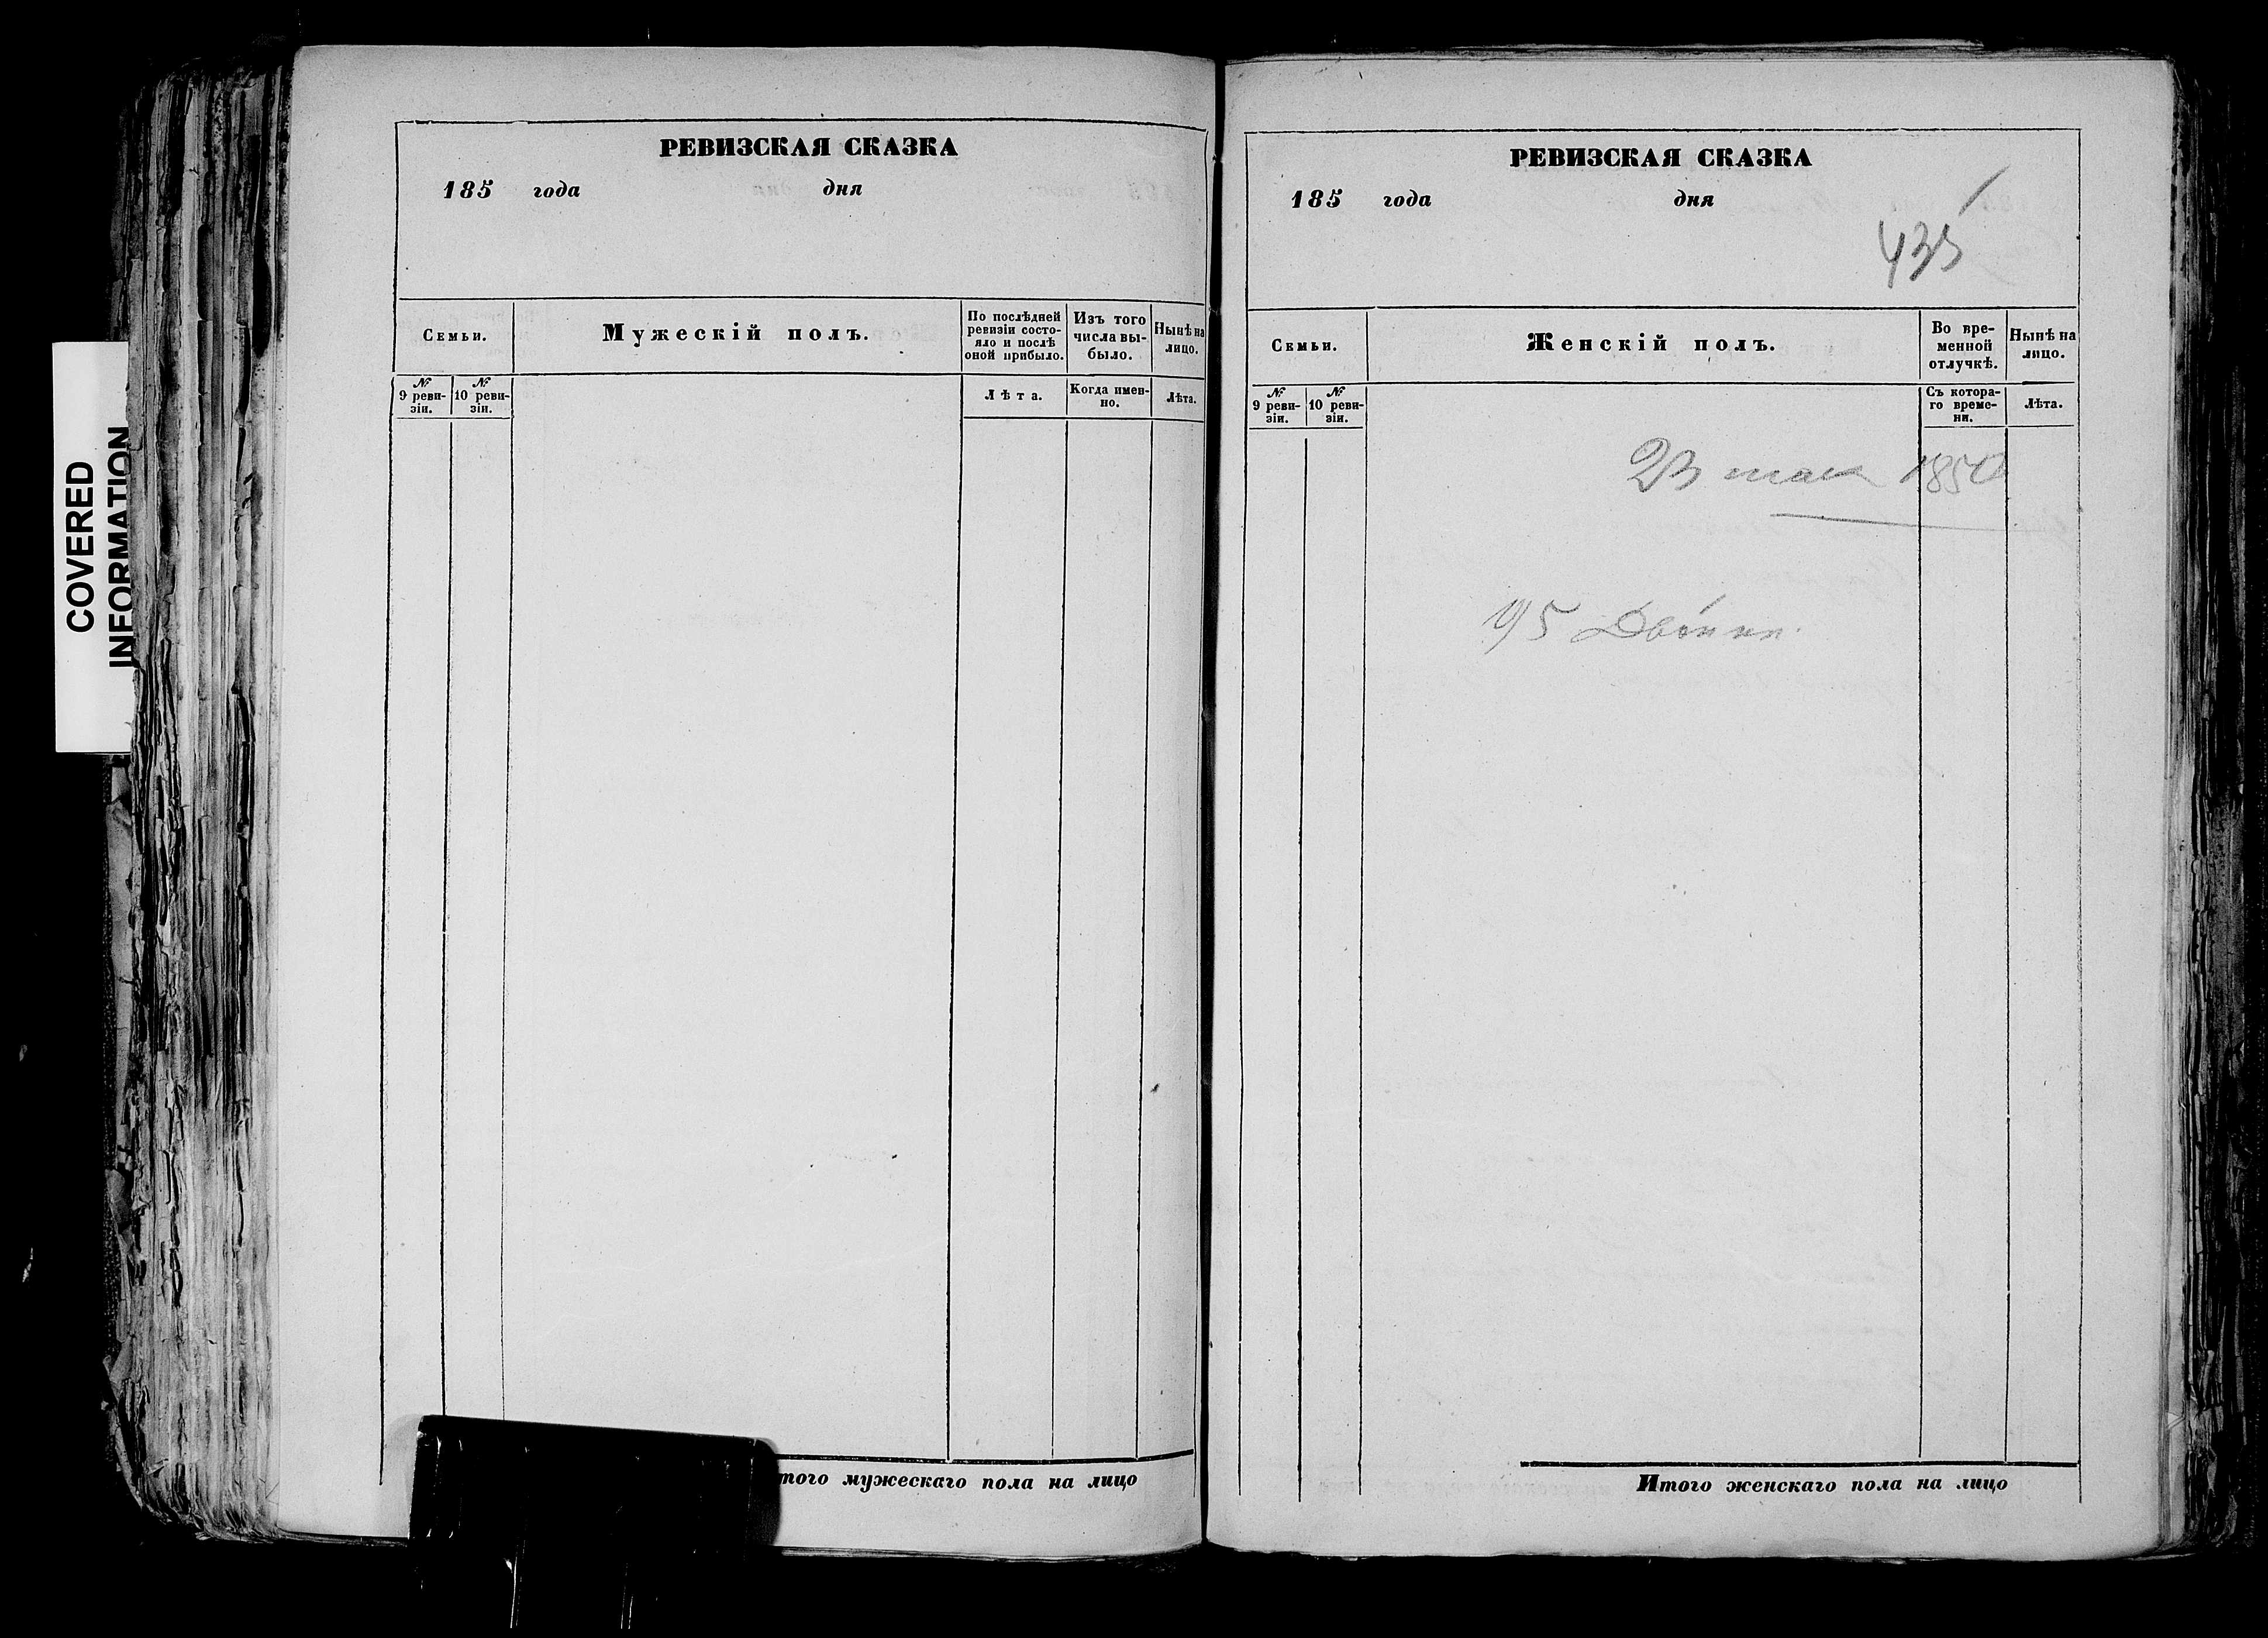 COVERED
INFORMATION
РЕВИЗСКАЯ СКАЗКА
185 года дня
Семьи.
Мужескій полъ.
По послѣдней ревизіи состо-
яло и послѣ
оной прибыло.
Изъ того
числа вы-
было.
Нынѣ на
лицо.
№
9 реви-
зіи.
№
10 реви-
зіи.
Лѣта.
Когда имен-
но.
Лѣта.
того мужескаго пола на лицо
РЕВИЗСКАЯ СКАЗКА
185 года дня
435
Семьи.
Женскій полъ.
Во вре-
менной
отлучкѣ.
Нынѣ на
лицо.
№
9 реви-
зіи.
№
10 реви-
зіи.
Съ котора-
го време-
ни.
Лѣта.
23 мая 1850
95
Итого женскаго пола на лицо